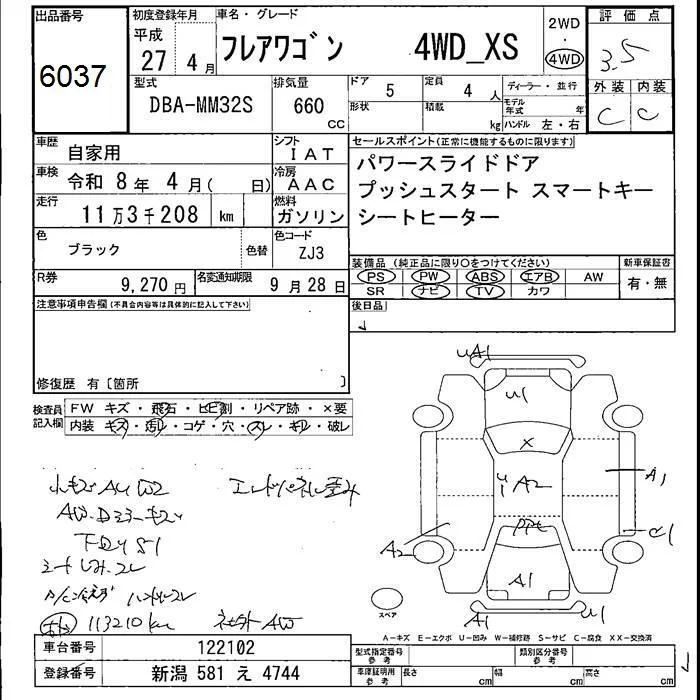 出品番号
6037
初度登録年月
平成
27 4月
車名・グレード
フレアワゴン 4WD_XS
2WD
・
4WD
評価点
3.5
型式
DBA-MM32S
排気量
660
CC
ドア 5
定員 4 人
形状
積載 kg
ディーラー・並行
モデル年式 年
ハンドル 左・右
外装 内装
C C
車歴 自家用
シフト IAT
車検 令和 8年 4月( 日)
冷房 AAC
走行 11万3千208 km
燃料 ガソリン
色 ブラック 色替
色コード ZJ3
セールスポイント(正常に機能するものに限ります)
パワースライドドア
プッシュスタート スマートキー
シートヒーター
R券 9,270円
名変通知期限 9月28日
装備品(純正品に限り○をつけてください)
PS PW ABS エアB AW
SR ナビ TV カワ
新車保証書
有・無
注意事項申告欄(不具合内容等は具体的に記入して下さい)
後日品
修復歴 有〔箇所 〕
検査員記入欄
FW キズ・飛石・ヒビ割・リペア跡・×要
内装 キズ・汚レ・コゲ・穴・スレ・キレ・破レ
小キズ AU W2 エンドパネル歪み
下回り S1
シートしみ、コレ
113210km 社外AW
UA1
U1
X
U1 A2
A1
A2
C1
A1
A1
U1
スペア
A-キズ E-エクボ U-凹み W-補修跡 S-サビ C-腐食 XX-交換済
車台番号 122102
登録番号 新潟 581 え 4744
型式指定番号 参考
類別区分番号 参考
車庫証明用 参考
長さ cm 幅 cm 高さ cm